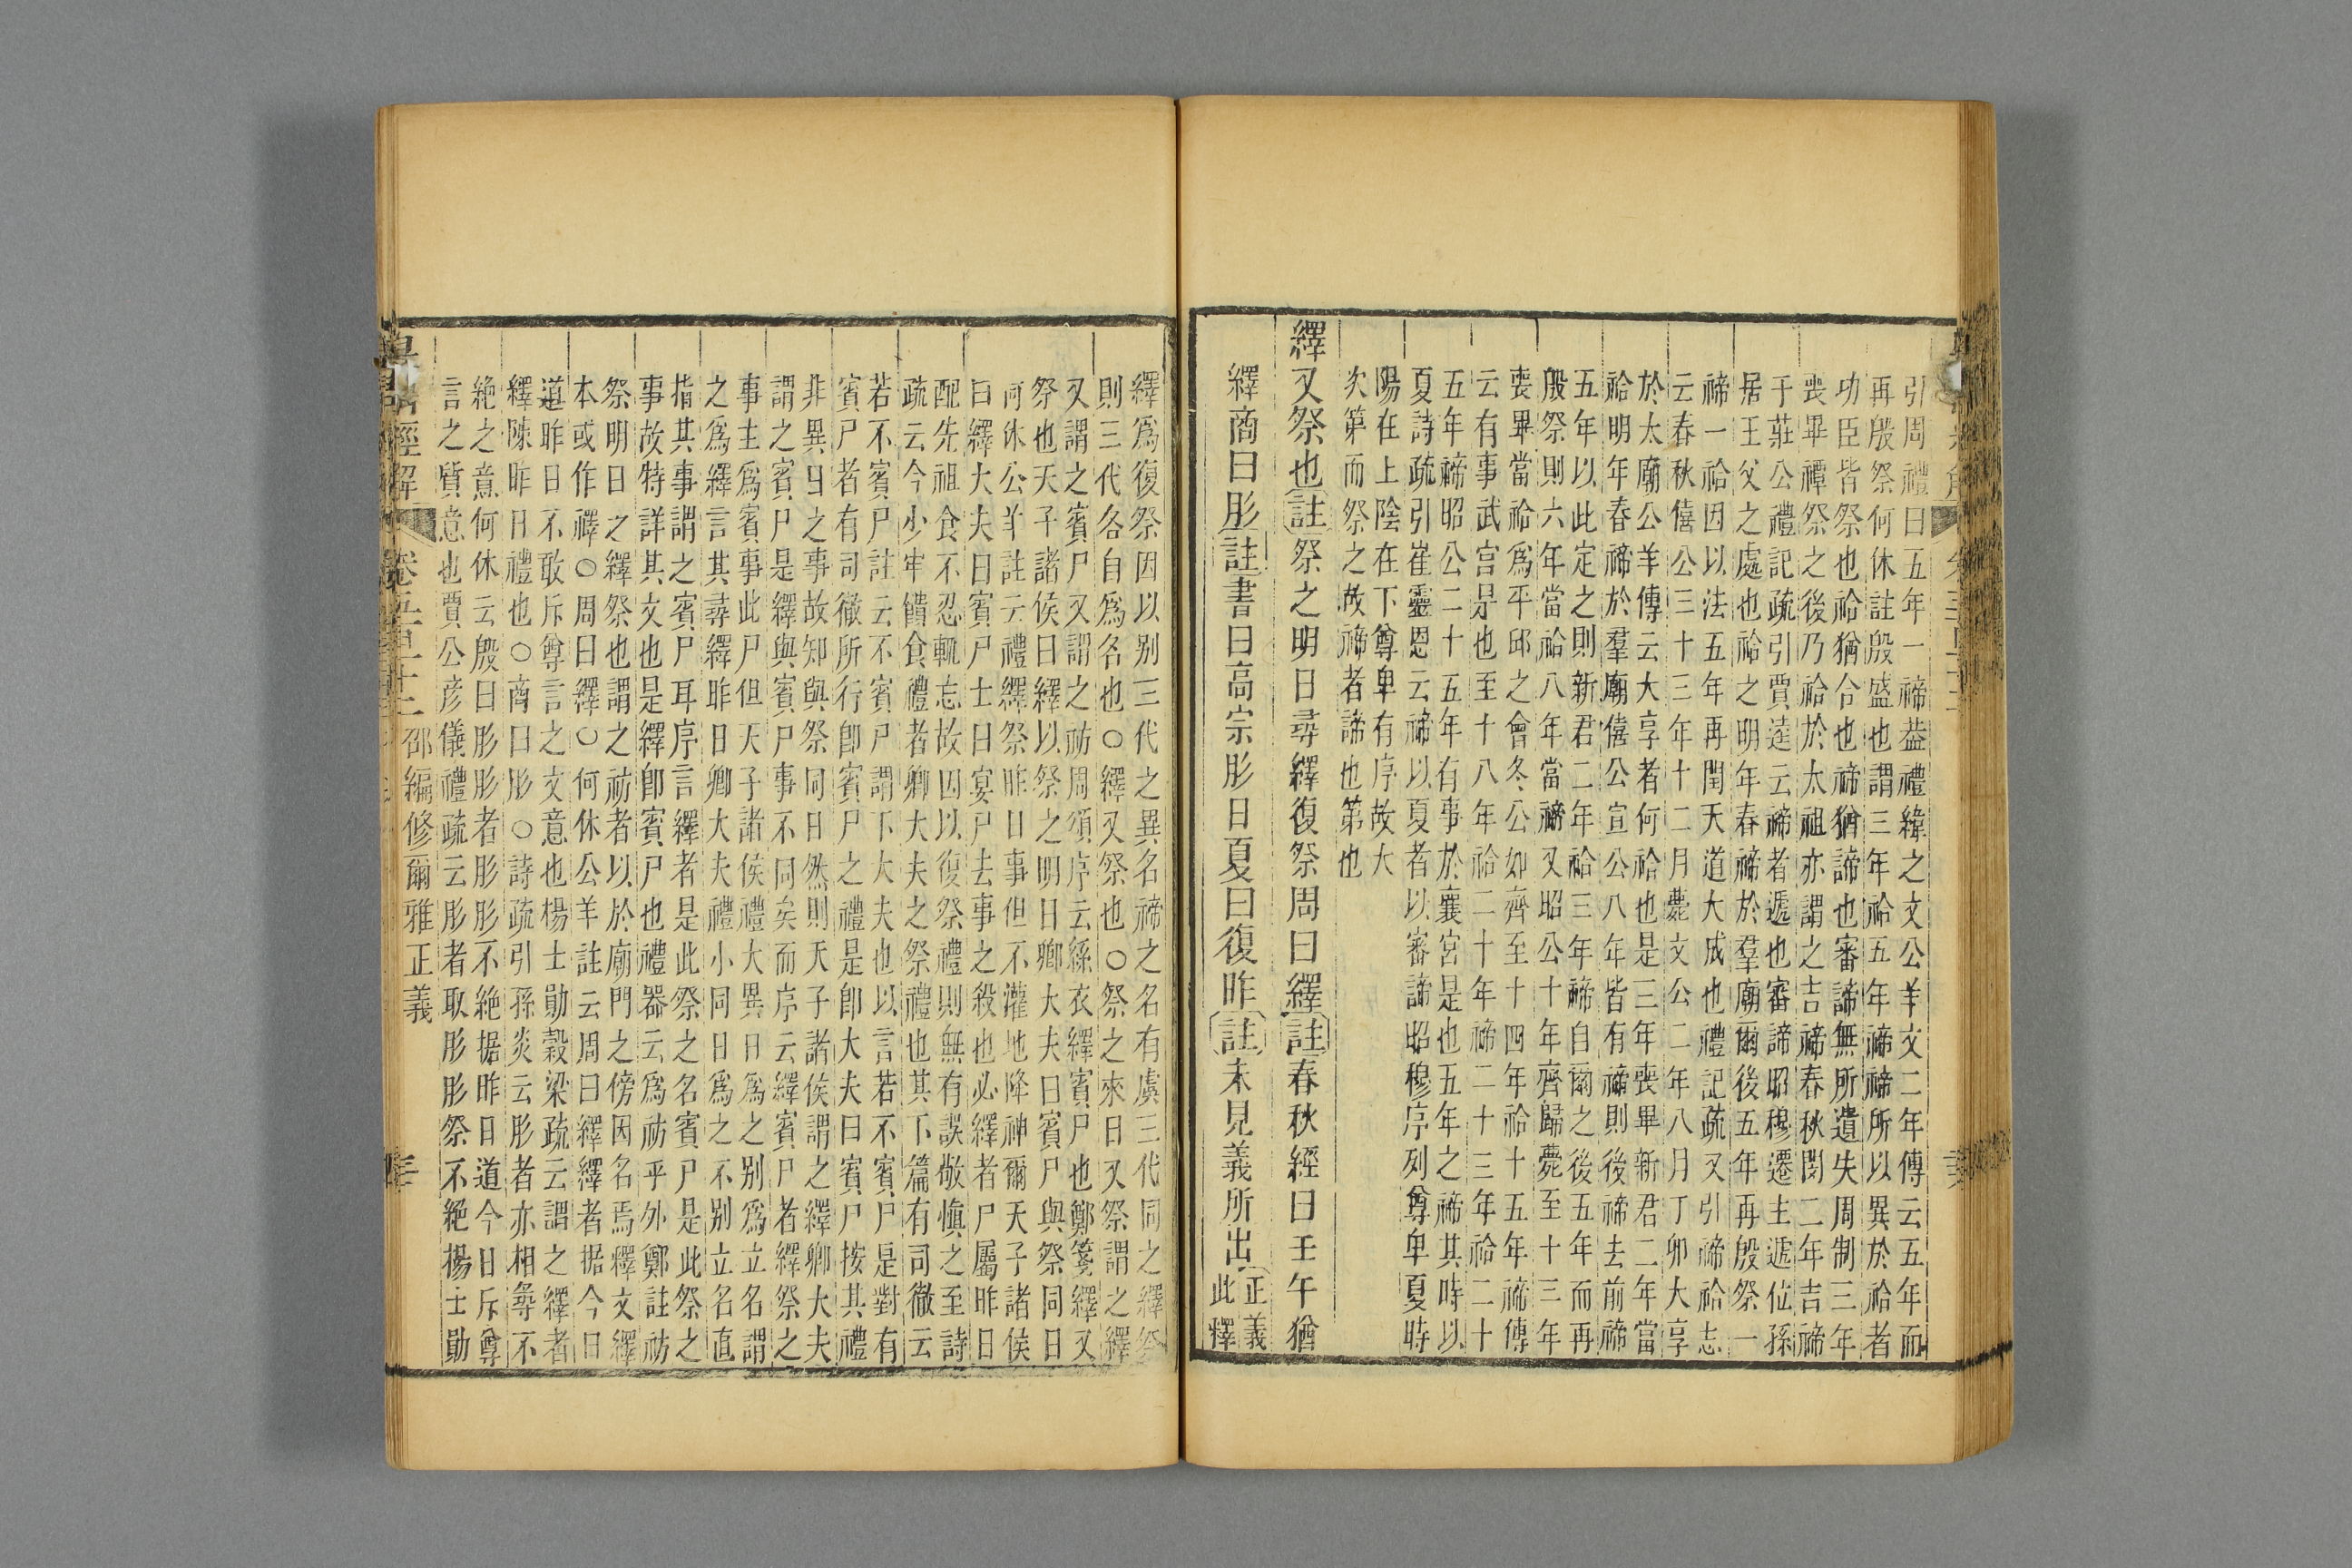 引周禮曰五年一禘葢禮緯之文公羊文二年傳云五年而
再殷祭何休註殷盛也謂三年祫五年禘禘所以異於祫者
功臣皆祭也祫猶合也禘猶諦也審諦無所遺失周制三年
喪畢禫祭之後乃祫於太祖亦謂之吉禘春秋閔二年吉禘
于莊公禮記疏引賈逵云禘者遞也審諦昭穆遷主遞位孫
居王父之處也祫之明年春禘於羣廟爾後五年再殷祭一
禘一祫因以法五年再閏天道大成也禮記疏又引禘祫志
云春秋僖公三十三年十二月薨文公二年八月丁卯大享
於太廟公羊傳云大享者何祫也是三年喪畢新君二年當
祫明年春禘於羣廟僖公宣公八年皆有禘則後禘去前禘
五年以此定之則新君二年祫三年禘自爾之後五年而再
殷祭則六年當祫八年當禘又昭公十年齊歸薨至十三年
喪畢當祫爲平邱之會冬公如齊至十四年祫十五年禘傳
云有事武宫是也至十八年祫二十年禘二十三年祫二十
五年禘昭公二十五年有事於襄宮是也五年之禘其時以
夏詩疏引崔靈恩云禘以夏者以審諦昭穆序列尊卑夏時
陽在上陰在下尊卑有序故大
次第而祭之故禘者諦也第也
繹又祭也註祭之明日尋繹復祭周曰繹註春秋經曰壬午猶
繹商曰肜註書曰高宗肜日夏曰復昨註未見義所出正義
此釋
繹爲復祭因以别三代之異名禘之名有虞三代同之繹祭
則三代各自爲名也○繹又祭也○祭之來日又祭謂之繹
又謂之賓尸又謂之祊周頌序云絲衣繹賓尸也鄭箋繹又
祭也天子諸侯曰繹以祭之明日卿大夫曰賓尸與祭同日
何休公羊註云禮繹祭昨日事但不灌地降神爾天子諸侯
曰繹大夫曰賓尸士曰宴尸去事之殺也必繹者尸屬昨日
配先祖食不忍輒忘故因以復祭禮則無有誤敬慎之至詩
疏云今少牢饋食禮者卿大夫之祭禮也其下篇有司徹云
若不賓尸註云不賓尸謂下大夫也以言若不賓尸是對有
賓尸者有司徹所行卽賓尸之禮是卽大夫曰賓尸按其禮
非異日之事故知與祭同日然則天子諸侯謂之繹卿大夫
謂之賓尸是繹與賓尸事不同矣而序云繹賓尸者繹祭之
事主爲賓事此尸但天子諸侯禮大異日爲之别爲立名謂
之爲繹言其尋繹昨日卿大夫禮小同日爲之不别立名直
指其事謂之賓尸耳序言繹者是此祭之名賓尸是此祭之
事故特詳其文也是繹卽賓尸也禮器云爲祊乎外鄭註祊
祭明日之繹祭也謂之祊者以於廟門之傍因名焉釋文繹
本或作襗○周曰繹○何休公羊註云周曰繹繹者据今日
道昨日不敢斥尊言之文意也楊士勛穀梁疏云謂之繹者
繹陳昨日禮也○商曰肜○詩疏引孫炎云肜者亦相尋不
絶之意何休云殷曰肜肜者肜肜不絶据昨日道今日斥尊
言之質意也賈公彦儀禮疏云肜者取肜肜祭不絶楊士勛
皇淸經解 卷五百十二 邵編修爾雅正義